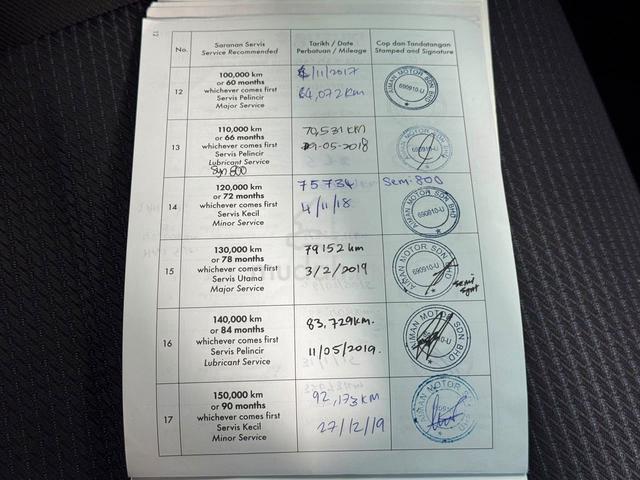 17
No.
Saranan Servis
Service Recommended
Tarikh / Date
Perbatuan / Mileage
Cop dan Tandatangan
Stamped and Signature
12
100,000 km
or 60 months
whichever comes first
Servis Pelincir
Major Service
/11/2017
64,072 km
AIMAN MOTOR SDN BHD
690910-U
13
110,000 km
or 66 months
whichever comes first
Servis Pelincir
Lubricant Service
70,531 KM
09-05-2018
AIMAN MOTOR SDN BHD
690910-U
Syn 800
14
120,000 km
or 72 months
whichever comes first
Servis Kecil
Minor Service
75734
4/11/18
Semi 800
AIMAN MOTOR SDN BHD
690910-U
15
130,000 km
or 78 months
whichever comes first
Servis Utama
Major Service
79152 km
3/2/2019
AIMAN MOTOR SDN BHD
690910-U
semi
16
140,000 km
or 84 months
whichever comes first
Servis Pelincir
Lubricant Service
83,729 km.
11/05/2019.
AIMAN MOTOR SDN BHD
17
150,000 km
or 90 months
whichever comes first
Servis Kecil
Minor Service
92,173 KM
27/12/19
AIMAN MOTOR